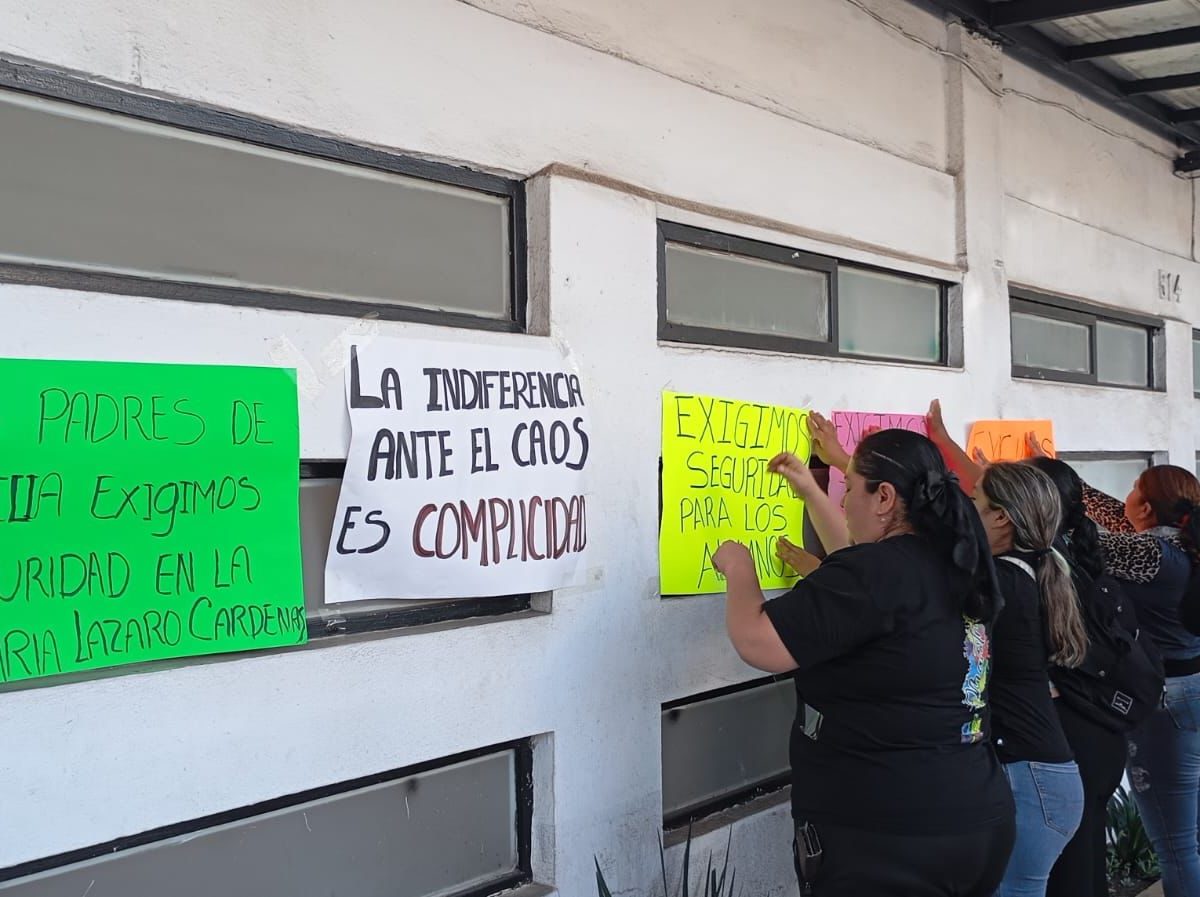 PADRES DE
EXIGIMOS
EN LA
LAZARO CARDENAS
LA INDIFERENCIA
ANTE EL CAOS
ES COMPLICIDAD
EXIGIMOS
SEGURIDAD
PARA LOS
EXIGIMOS
514